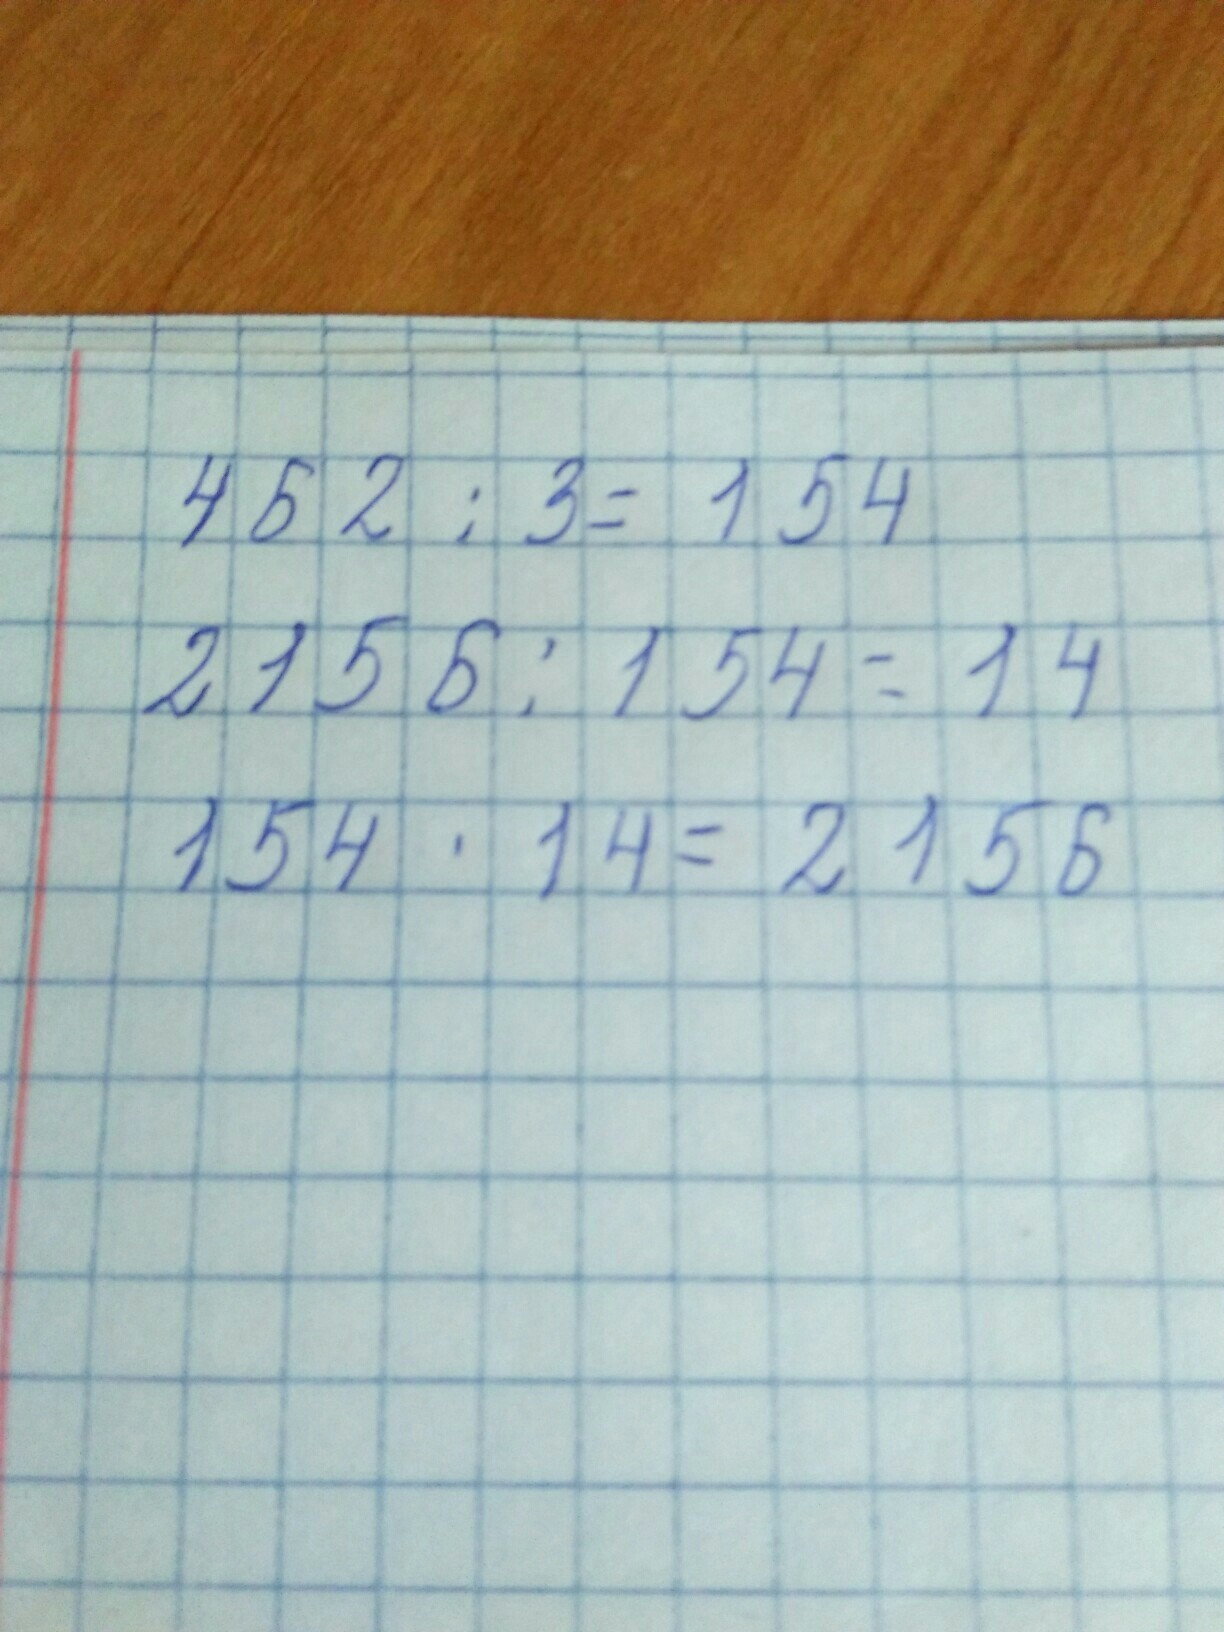 462 : 3 = 154
2156 : 154 = 14
154 · 14 = 2156